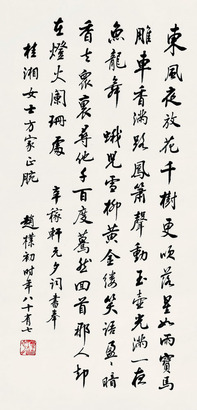 東風夜放花千樹更吹落星如雨寶馬
雕車香滿路鳳簫聲動玉壺光滿一夜
魚龍舞 蛾兒雪柳黃金縷笑語盈盈暗
香去衆裏尋他千百度驀然回首那人却
在燈火闌珊處 辛稼軒元夕詞書奉
桂湘女士方家正腕 趙樸初時年八十有七